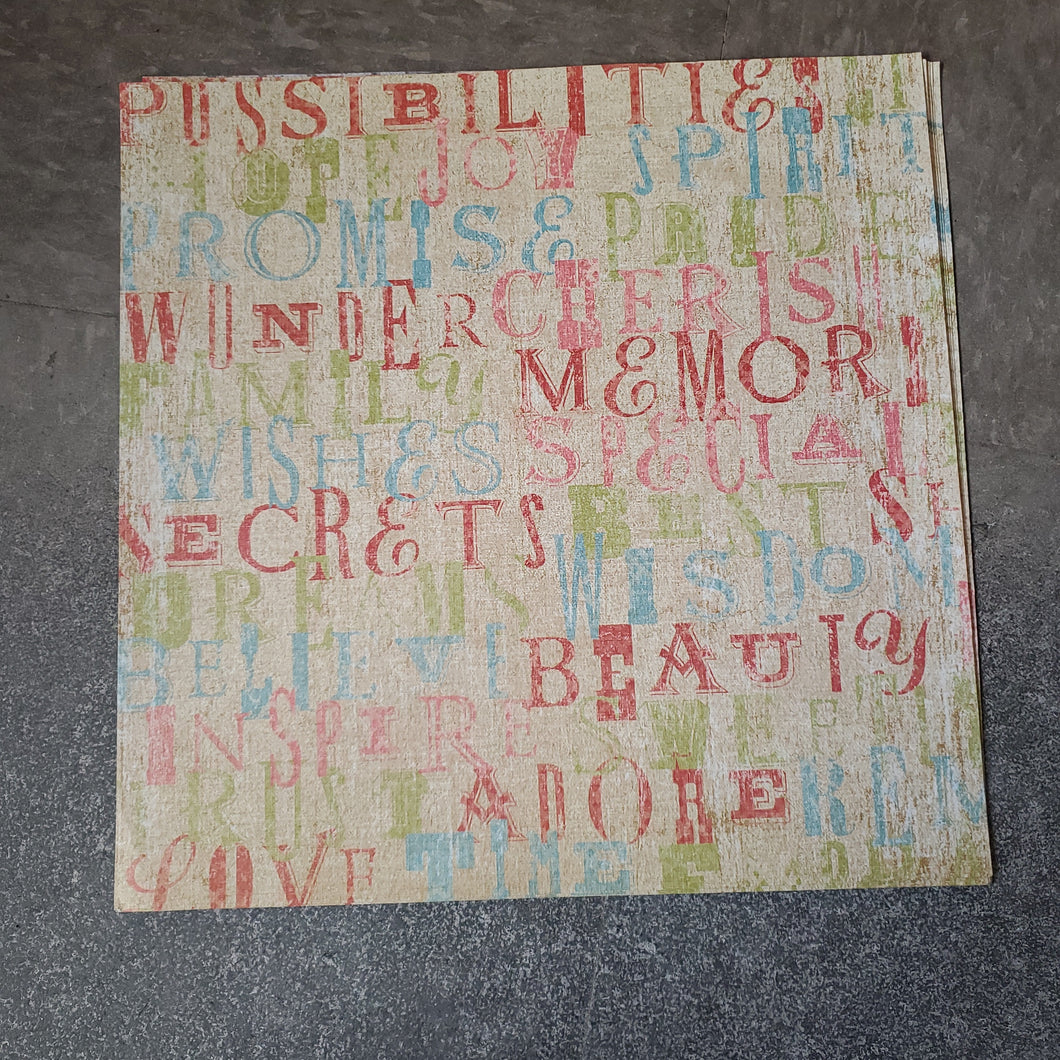 POSSIBILITIES
HOPE JOY SPIRIT
PROMISE PRIDE
WONDER CHERISH
FAMILY MEMORY
WISHES SPECIAL
SECRETS BEST
DREAMS WISDOM
BELIEVE BEAUTY
INSPIRE SWEET
TRUST ADORE
LOVE TIME